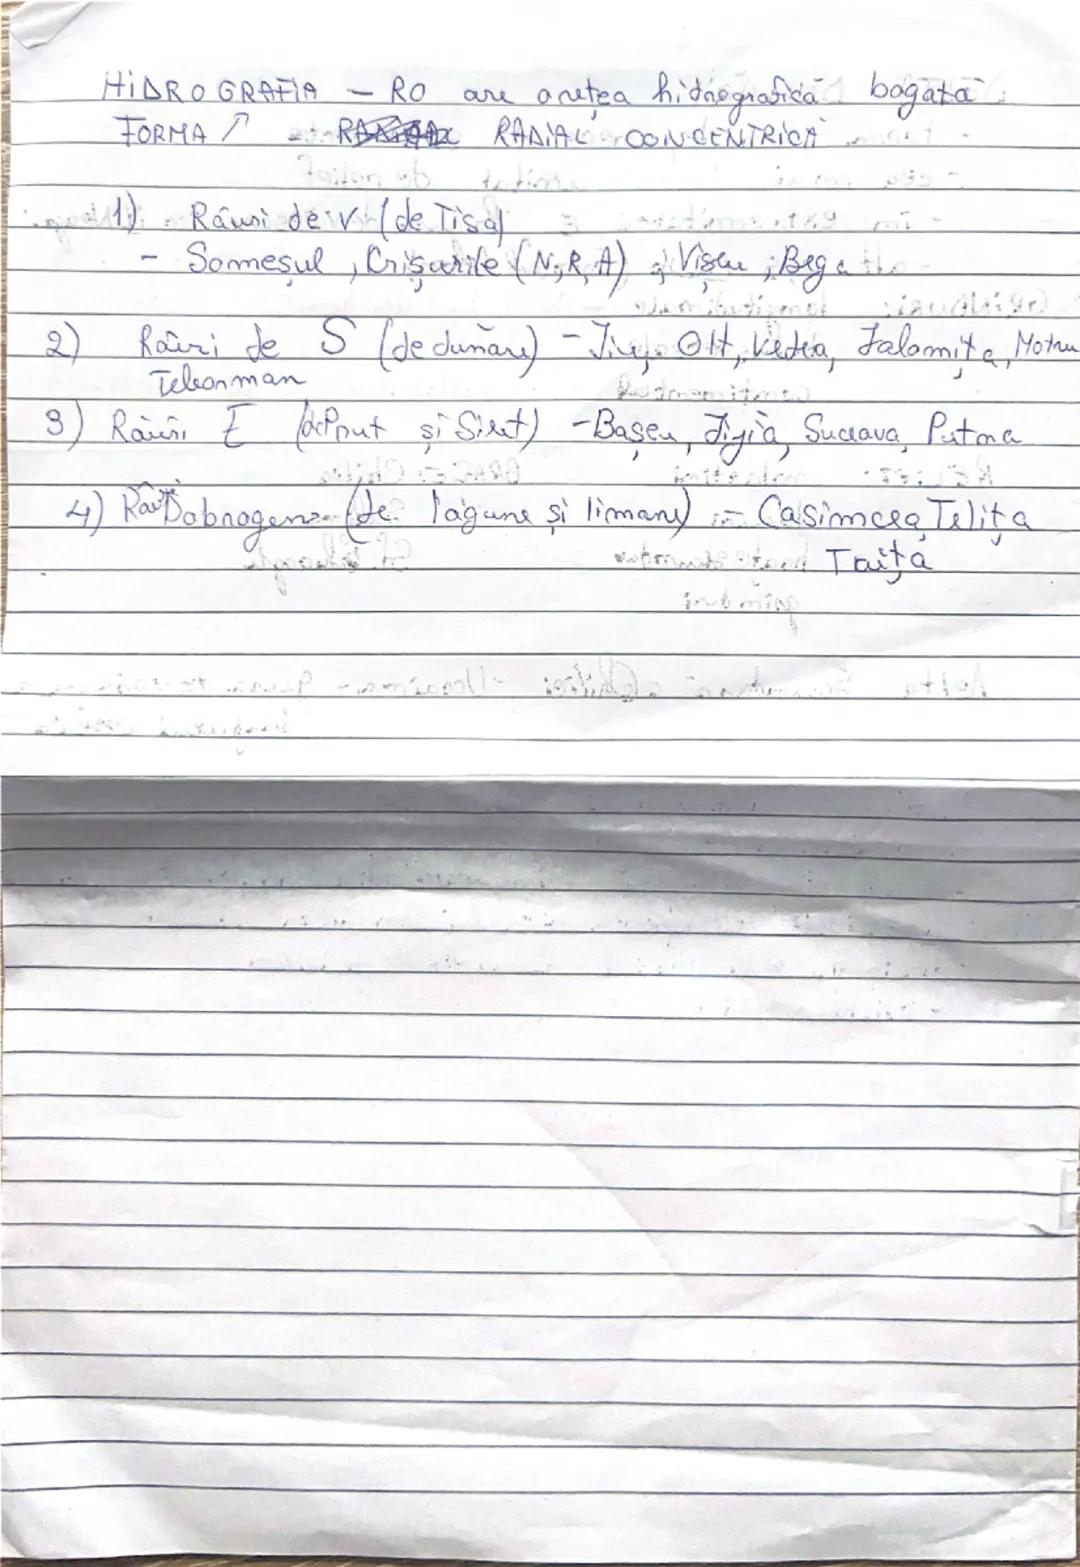 HIDROGRAFIA – RO are o rețea hidrografică bogată
FORMA ↗ RADIAL CONCENTRICĂ
1) Râuri de V (de Tisa)
- Someșul, Crișurile (N, R, A), Vișeu, Bega
2) Râuri de S (de dunăre) - Jiu, Olt, Vedea, Ialomița, Motru
Teleorman
3) Râuri E (de Prut și Siret) - Bașeu, Jijia, Suceava, Putna
4) Râu Dobrogene (de lagune și limane) - Casimcea, Telița
Taița